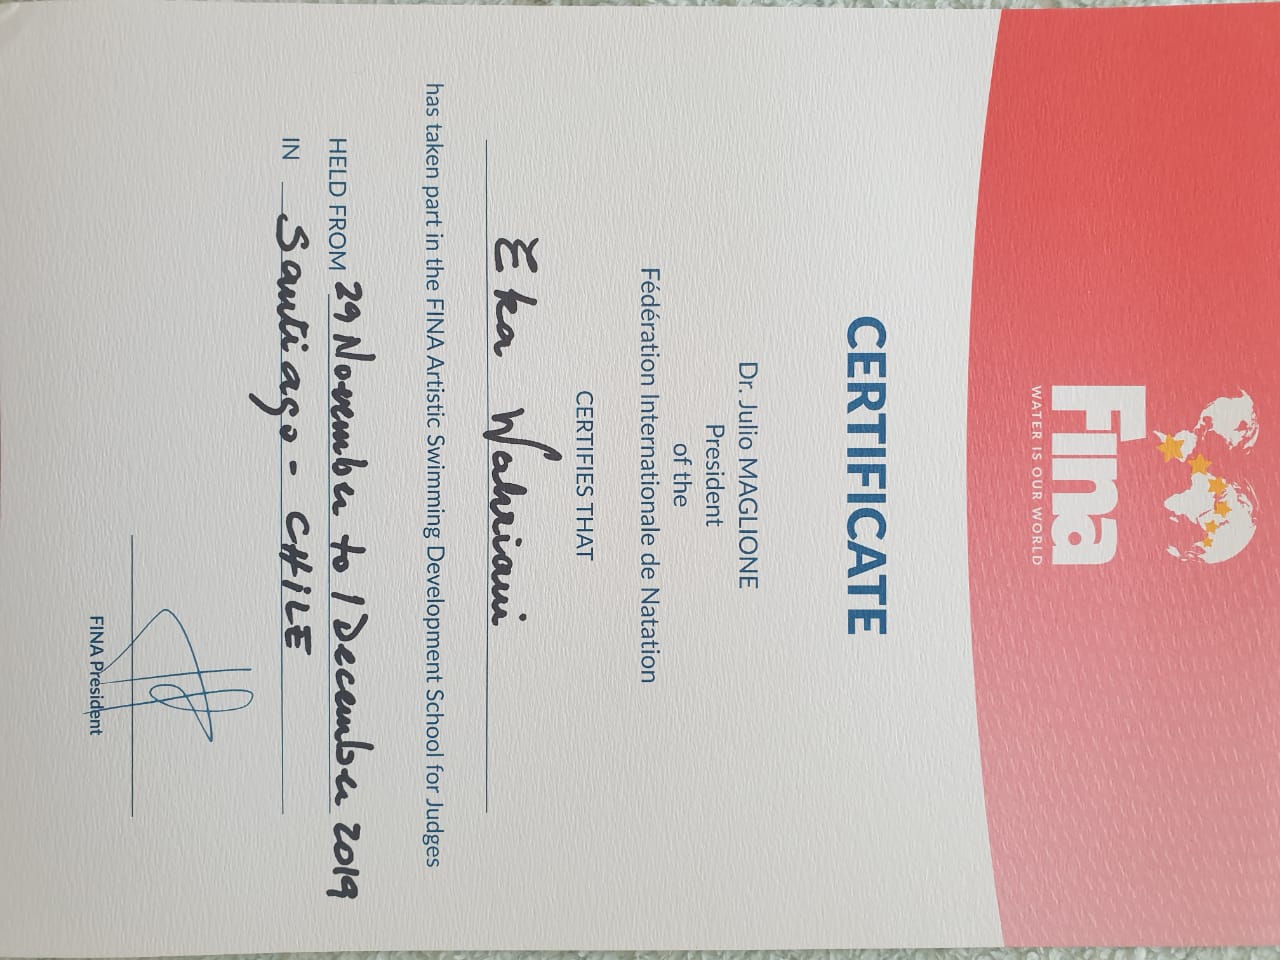 Fina
WATER IS OUR WORLD
CERTIFICATE
Dr. Julio MAGLIONE
President
of the
Fédération Internationale de Natation
CERTIFIES THAT
Eka Wahriani
has taken part in the FINA Artistic Swimming Development School for Judges
HELD FROM 29 November to 1 December 2019
IN Santiago - CHiLE
FINA President